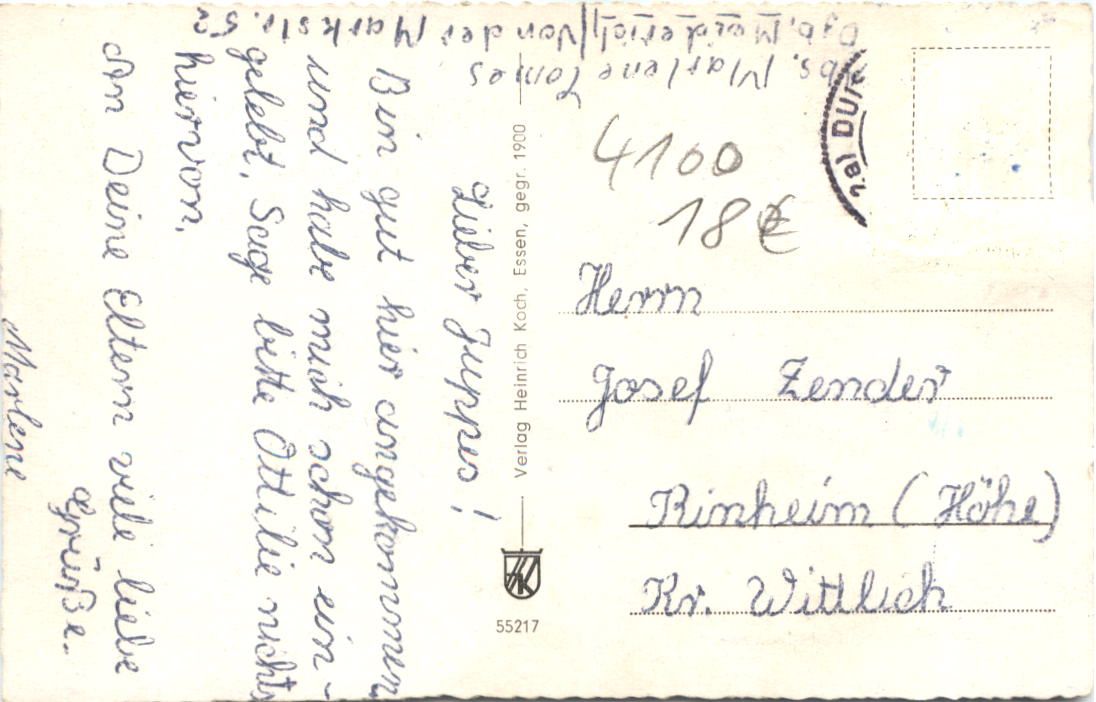 Abs. Marlene Lones
Dgb. Meiderich/Von der Markstr. 52
Lieber Juppes!
Bin gut hier angekommen
und habe mich schon ein-
gelebt. Sage bitte Ottilie nichts
hiervon.
An Deine Eltern viele liebe
Grüße.
Marlene
Verlag Heinrich Koch, Essen, gegr. 1900
HK
55217
DU
4100
18 €
Herrn
Josef Zender
Rinheim (Höhe)
Kr. Wittlich